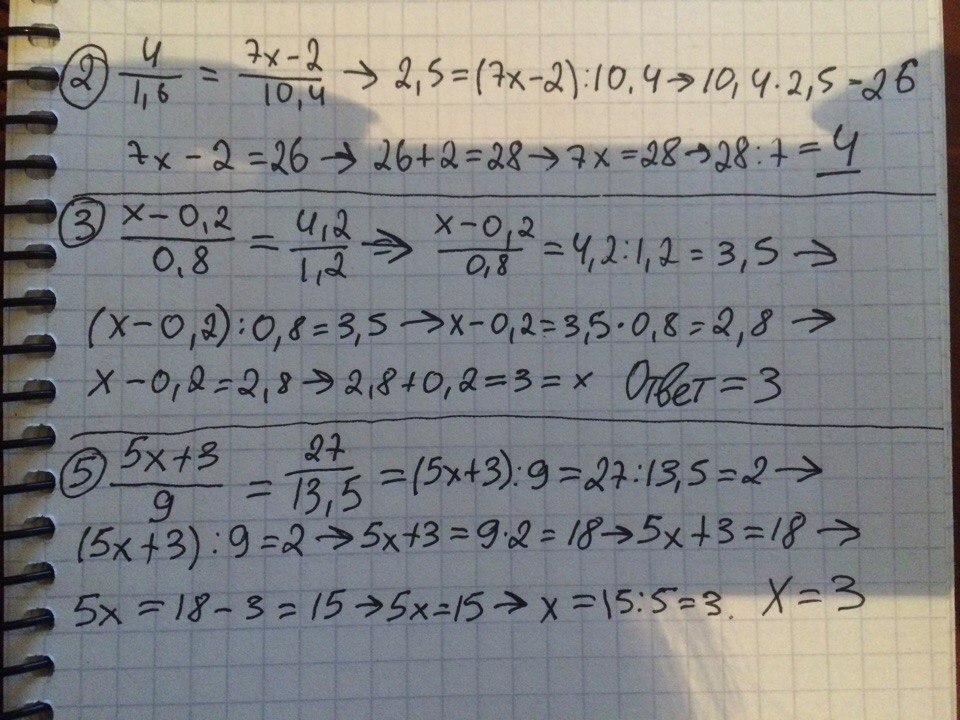 ② 4/1,6 = (7x-2)/10,4 → 2,5=(7x-2):10,4→10,4·2,5=26
7x-2=26→26+2=28→7x=28→28:7=4
③ (x-0,2)/0,8 = 4,2/1,2 ⇒ (x-0,2)/0,8 = 4,2:1,2=3,5→
(x-0,2):0,8=3,5→x-0,2=3,5·0,8=2,8→
x-0,2=2,8→2,8+0,2=3=x Ответ=3
⑤ (5x+3)/9 = 27/13,5 =(5x+3):9=27:13,5=2→
(5x+3):9=2→5x+3=9·2=18→5x+3=18→
5x=18-3=15→5x=15→x=15:5=3. X=3